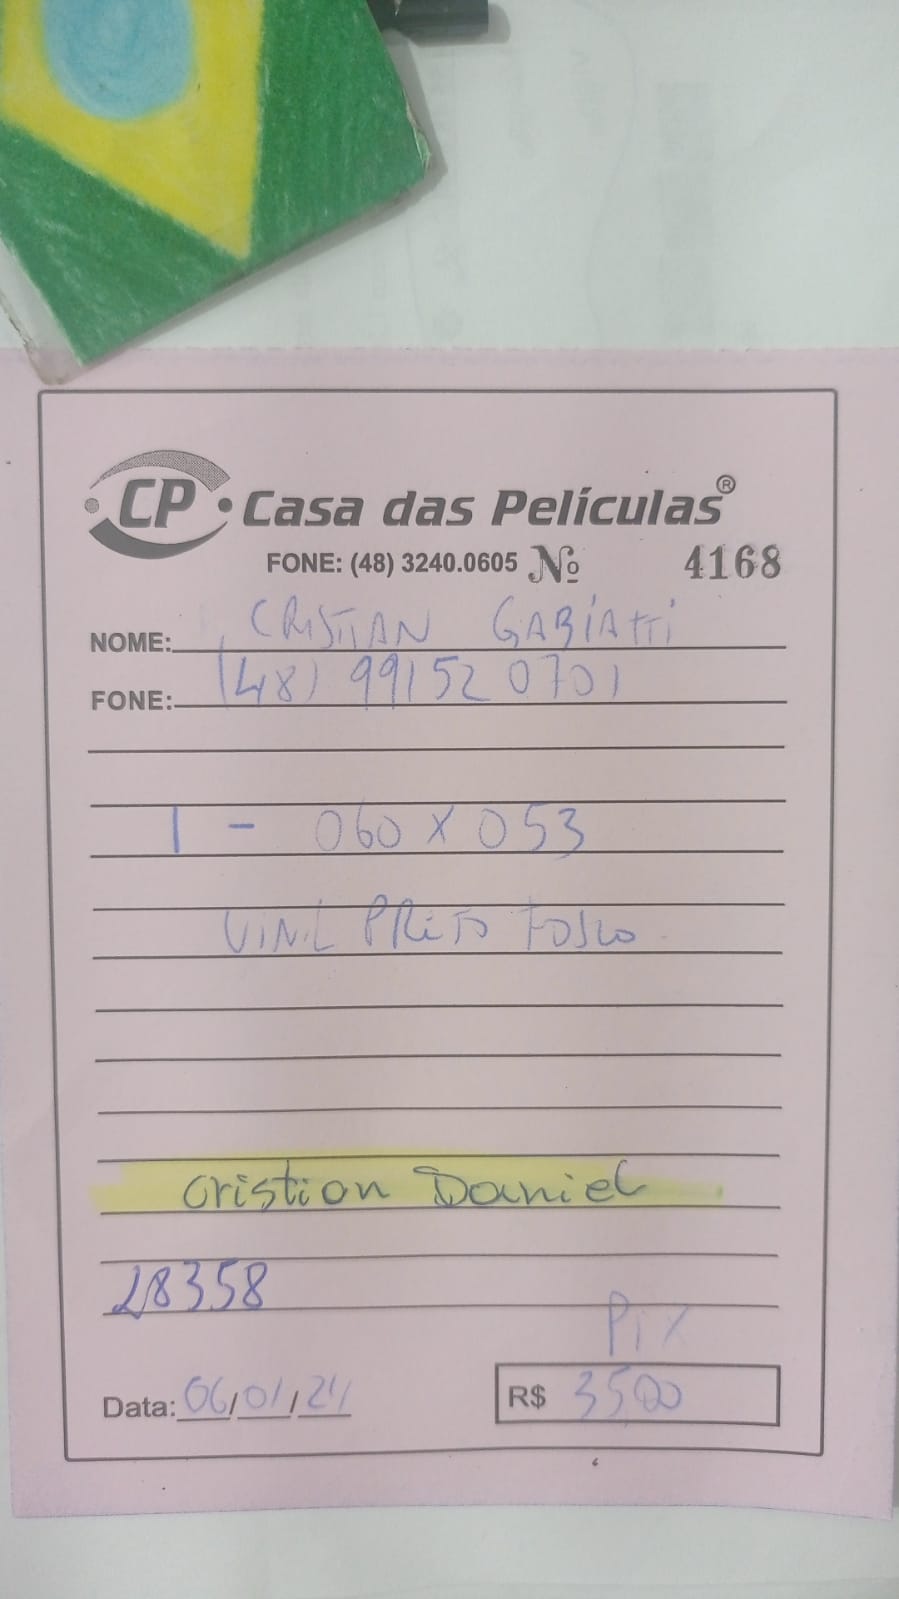 CP Casa das Películas®
FONE: (48) 3240.0605 Nº 4168
NOME: CRISTIAN GABIATTI
FONE: (48) 991520701
1 - 060 X 053
VINIL PRETO FOSCO
Cristian Daniel
28358
PIX
Data: 06/01/24 R$ 35,00